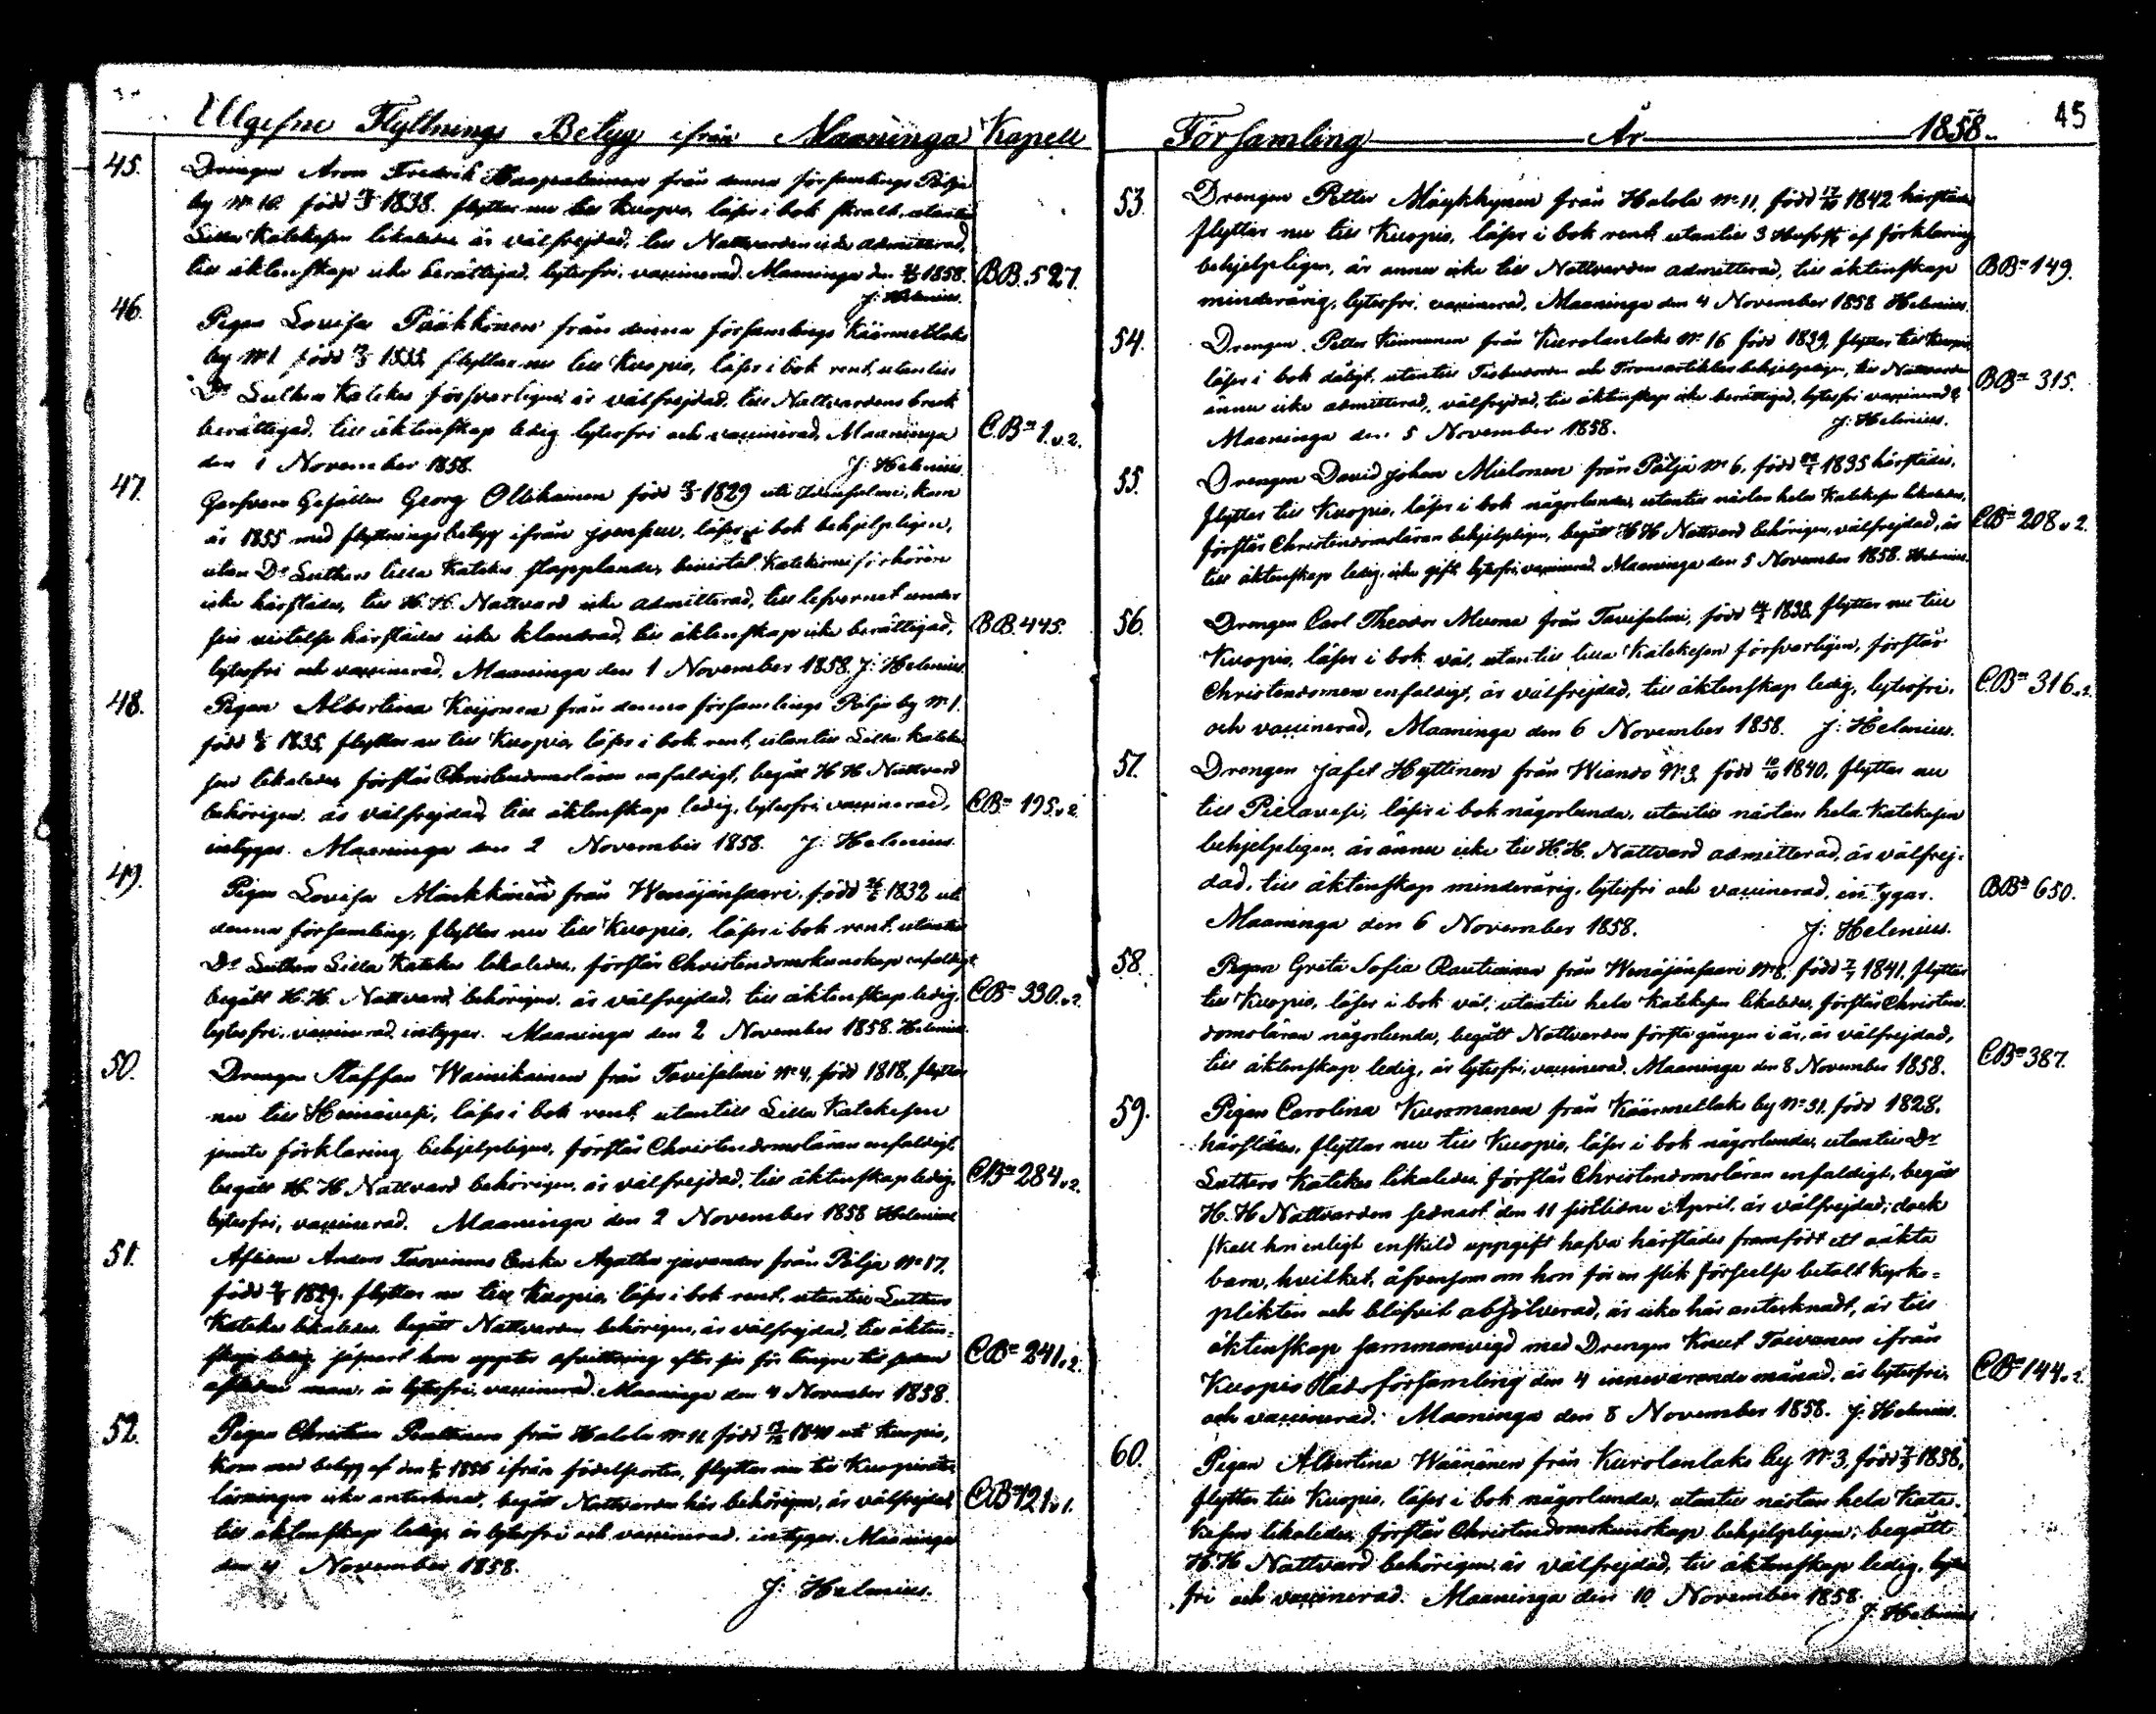 Utgifne Flyttnings Betyg ifrån Maaninga Kapell
45.
Drengen Aron Fredrik från denna församlings Pölja
by No 10. född 1838. flyttar nu till Kuopio, läser i bok utantill
Lilla Katekesen likaledes är välfrejdad, till Nattvarden icke admitterad,
till äktenskap icke berättigad, lytesfri, vaccinerad. Maaninga den 1858.
BB. 527.
J: Helenius.
46.
Pigan Lovisa Pääkkönen från denna församlings Käärmetlaks
by No 1. född flyttar nu till Kuopio, läser i bok rent, utantill
Dr Luthers Katekes försvarligen är välfrejdad, till Nattvardens bruk
berättigad, till äktenskap ledig lytesfri och vaccinerad, Maaninga
CBn 1. v 2.
den 1 November 1858. J: Helenius.
47.
Garfvare Gesällen Georg Ollikainen född 1829 uti kom
år 1855 med flyttningsbetyg ifrån läser i bok behjelpligen,
utan Dr Luthers lilla Katekes stapplande,
icke härstädes, till H. H. Nattvard icke admitterad, till lefvernet under
sin vistelse härstädes icke klandrad, till äktenskap icke berättigad,
BB. 445.
lytesfri och vaccinerad, Maaninga den 1 November 1858. J: Helenius.
48.
Pigan Albertina Keijonen från denna församlings Pölja by No 1.
född 1835, flyttar nu till Kuopio, läser i bok rent, utantill Lilla Kateke
sen likaledes, förstår Christendomsläran enfaldigt, begått H H Nattvard
behörigen, är välfrejdad, till äktenskap ledig, lytesfri, vaccinerad,
CBn 195. v 2.
intygar. Maaninga den 2 November 1858. J: Helenius.
49.
Pigan Lovisa Mönkkönen från Wenäjänsaari, född 1832 uti
denna församling, flyttar nu till Kuopio, läser i bok rent, utantill
Dr Luthers Lilla Katekes likaledes, förstår Christendomskunskap enfaldigt
begått H. H. Nattvard, behörigen, är välfrejdad, till äktenskap ledig,
CBn 330. v 2.
lytesfri, vaccinerad, intygar. Maaninga den 2 November 1858. Helenius.
50.
Drengen Staffan Wainikainen från Tavisalmi No 4, född 1818, flyttar
nu till Heinävesi, läser i bok rent, utantill Lilla Katekesen
jemte förklaring behjelpligen, förstår Christendomsläran enfaldigt,
begått H. H Nattvard behörigen, är välfrejdad, till äktenskap ledig,
CBn 284. v 2.
lytesfri, vaccinerad. Maaninga den 2 November 1858 Helenius
51.
Aflidne Anders Enka Agatha från Pölja No 17.
född 1829. flyttar nu till Kuopio, läser i bok rent, utantill Luthers
Katekes likaledes, begått Nattvarden behörigen, är välfrejdad, till äkten=
skap ledig, hon efter sin
CBn 241. v 2.
man, är lytesfri, vaccinerad. Maaninga den 4 November 1858.
52.
Pigan Christina från Halola No 11 född 1840 uti Kuopio,
kom med betyg af den 1856 ifrån födelseorten, flyttar nu till Kuopio
läsningen icke antecknad, begått Nattvarden här behörigen, är välfrejdad,
CBn 121 v 1.
till äktenskap ledig, är lytesfri och vaccinerad, intygar. Maaninga
den 4 November 1858.
J: Helenius.
Församling År 1858. 45
53.
Drengen Petter Möykkynen från Halola No 11, född 1842 härstädes
flyttar nu till Kuopio, läser i bok rent, utantill 3 af förklaring
behjelpligen, är ännu icke till Nattvarden admitterad, till äktenskap
BBn 149.
minderårig, lytesfri, vaccinerad, Maaninga den 4 November 1858 Helenius.
54.
Drengen Petter Kinnunen från Kurolanlaks No 16 född 1839, flyttar till Kuopio,
läser i bok dåligt, utantill och Trosartiklar behjelpligen, till Nattvarden
BBn 315.
ännu icke admitterad, välfrejdad, till äktenskap icke berättigad, lytesfri vaccinerad,
Maaninga den 5 November 1858. J: Helenius.
55.
Drengen David Johan Mielonen från Pölja No 6. född 1835 härstädes,
flyttar till Kuopio, läser i bok någorlunda, utantill nästan hela Katekesen likaledes,
CBn 208 v 2.
förstår Christendomsläran behjelpligen, begått H H Nattvard behörigen, välfrejdad, är
till äktenskap ledig, icke gift, lytesfri, vaccinerad, Maaninga den 5 November 1858. Helenius.
56.
Drengen Carl Theodor Muona från Tavisalmi, född 1838, flyttar nu till
Kuopio, läser i bok väl, utantill lilla Katekesen försvarligen, förstår
Christendomen enfaldigt, är välfrejdad, till äktenskap ledig, lytesfri,
CBn 316. v 2.
och vaccinerad, Maaninga den 6 November 1858. J: Helenius.
57.
Drengen Jafet Hyttinen från Wianso No 3, född 1840, flyttar nu
till Pielavesi, läser i bok någorlunda, utantill nästan hela Katekesen
behjelpligen, är ännu icke till H. H. Nattvard admitterad, är välfrej-
dad, till äktenskap minderårig, lytesfri och vaccinerad, intygar.
BBn 650.
Maaninga den 6 November 1858. J: Helenius.
58.
Pigan Greta Sofia Rautiainen från Wenäjänsaari No 8, född 1841, flyttar
till Kuopio, läser i bok väl, utantill hela Katekesen likaledes, förstår Christen-
domsläran någorlunda, begått Nattvarden första gången i år, är välfrejdad,
CBn 387.
till äktenskap ledig, är lytesfri, vaccinerad. Maaninga den 8 November 1858.
59.
Pigan Carolina Kuosmanen från Käärmetlaks by No 31, född 1828,
härstädes, flyttar nu till Kuopio, läser i bok någorlunda, utantill Dr
Luthers Katekes likaledes, förstår Christendomsläran enfaldigt, begått
H. H Nattvarden sednast den 11 sistlidne April, är välfrejdad; dock
skall hon enligt enskild uppgift hafva härstädes framfödt ett oäkta
barn, hvilket, äfvensom om hon för en slik förseelse betalt Kyrko=
plikten och blifvit absolverad, är icke här antecknadt, är till
äktenskap sammanvigd med Drengen Knut Toivanen ifrån
Kuopio Stadsförsamling den 4 innevarande månad, är lytesfri,
CBn 144. v 2.
och vaccinerad. Maaninga den 8 November 1858. J: Helenius.
60.
Pigan Albertina Wäänänen från Kurolanlaks by No 3, född 1838,
flyttar till Kuopio, läser i bok någorlunda, utantill nästan hela Kate-
kesen likaledes, förstår Christendomskunskap behjelpligen; begått
H. H Nattvard behörigen, är välfrejdad, till äktenskap ledig, lytes
fri och vaccinerad. Maaninga den 10 November 1858.
J: Helenius